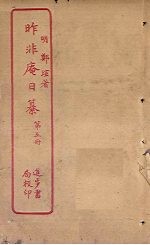 明 鄭瑄著
昨非庵日纂 第五册
進步書
局校印